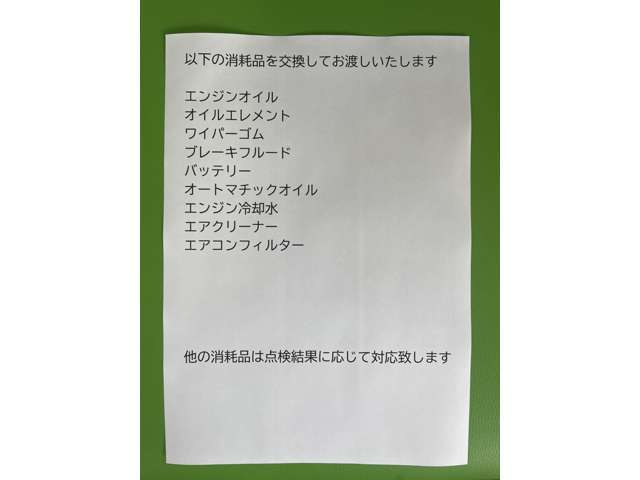 以下の消耗品を交換してお渡しいたします
エンジンオイル
オイルエレメント
ワイパーゴム
ブレーキフルード
バッテリー
オートマチックオイル
エンジン冷却水
エアクリーナー
エアコンフィルター
他の消耗品は点検結果に応じて対応致します